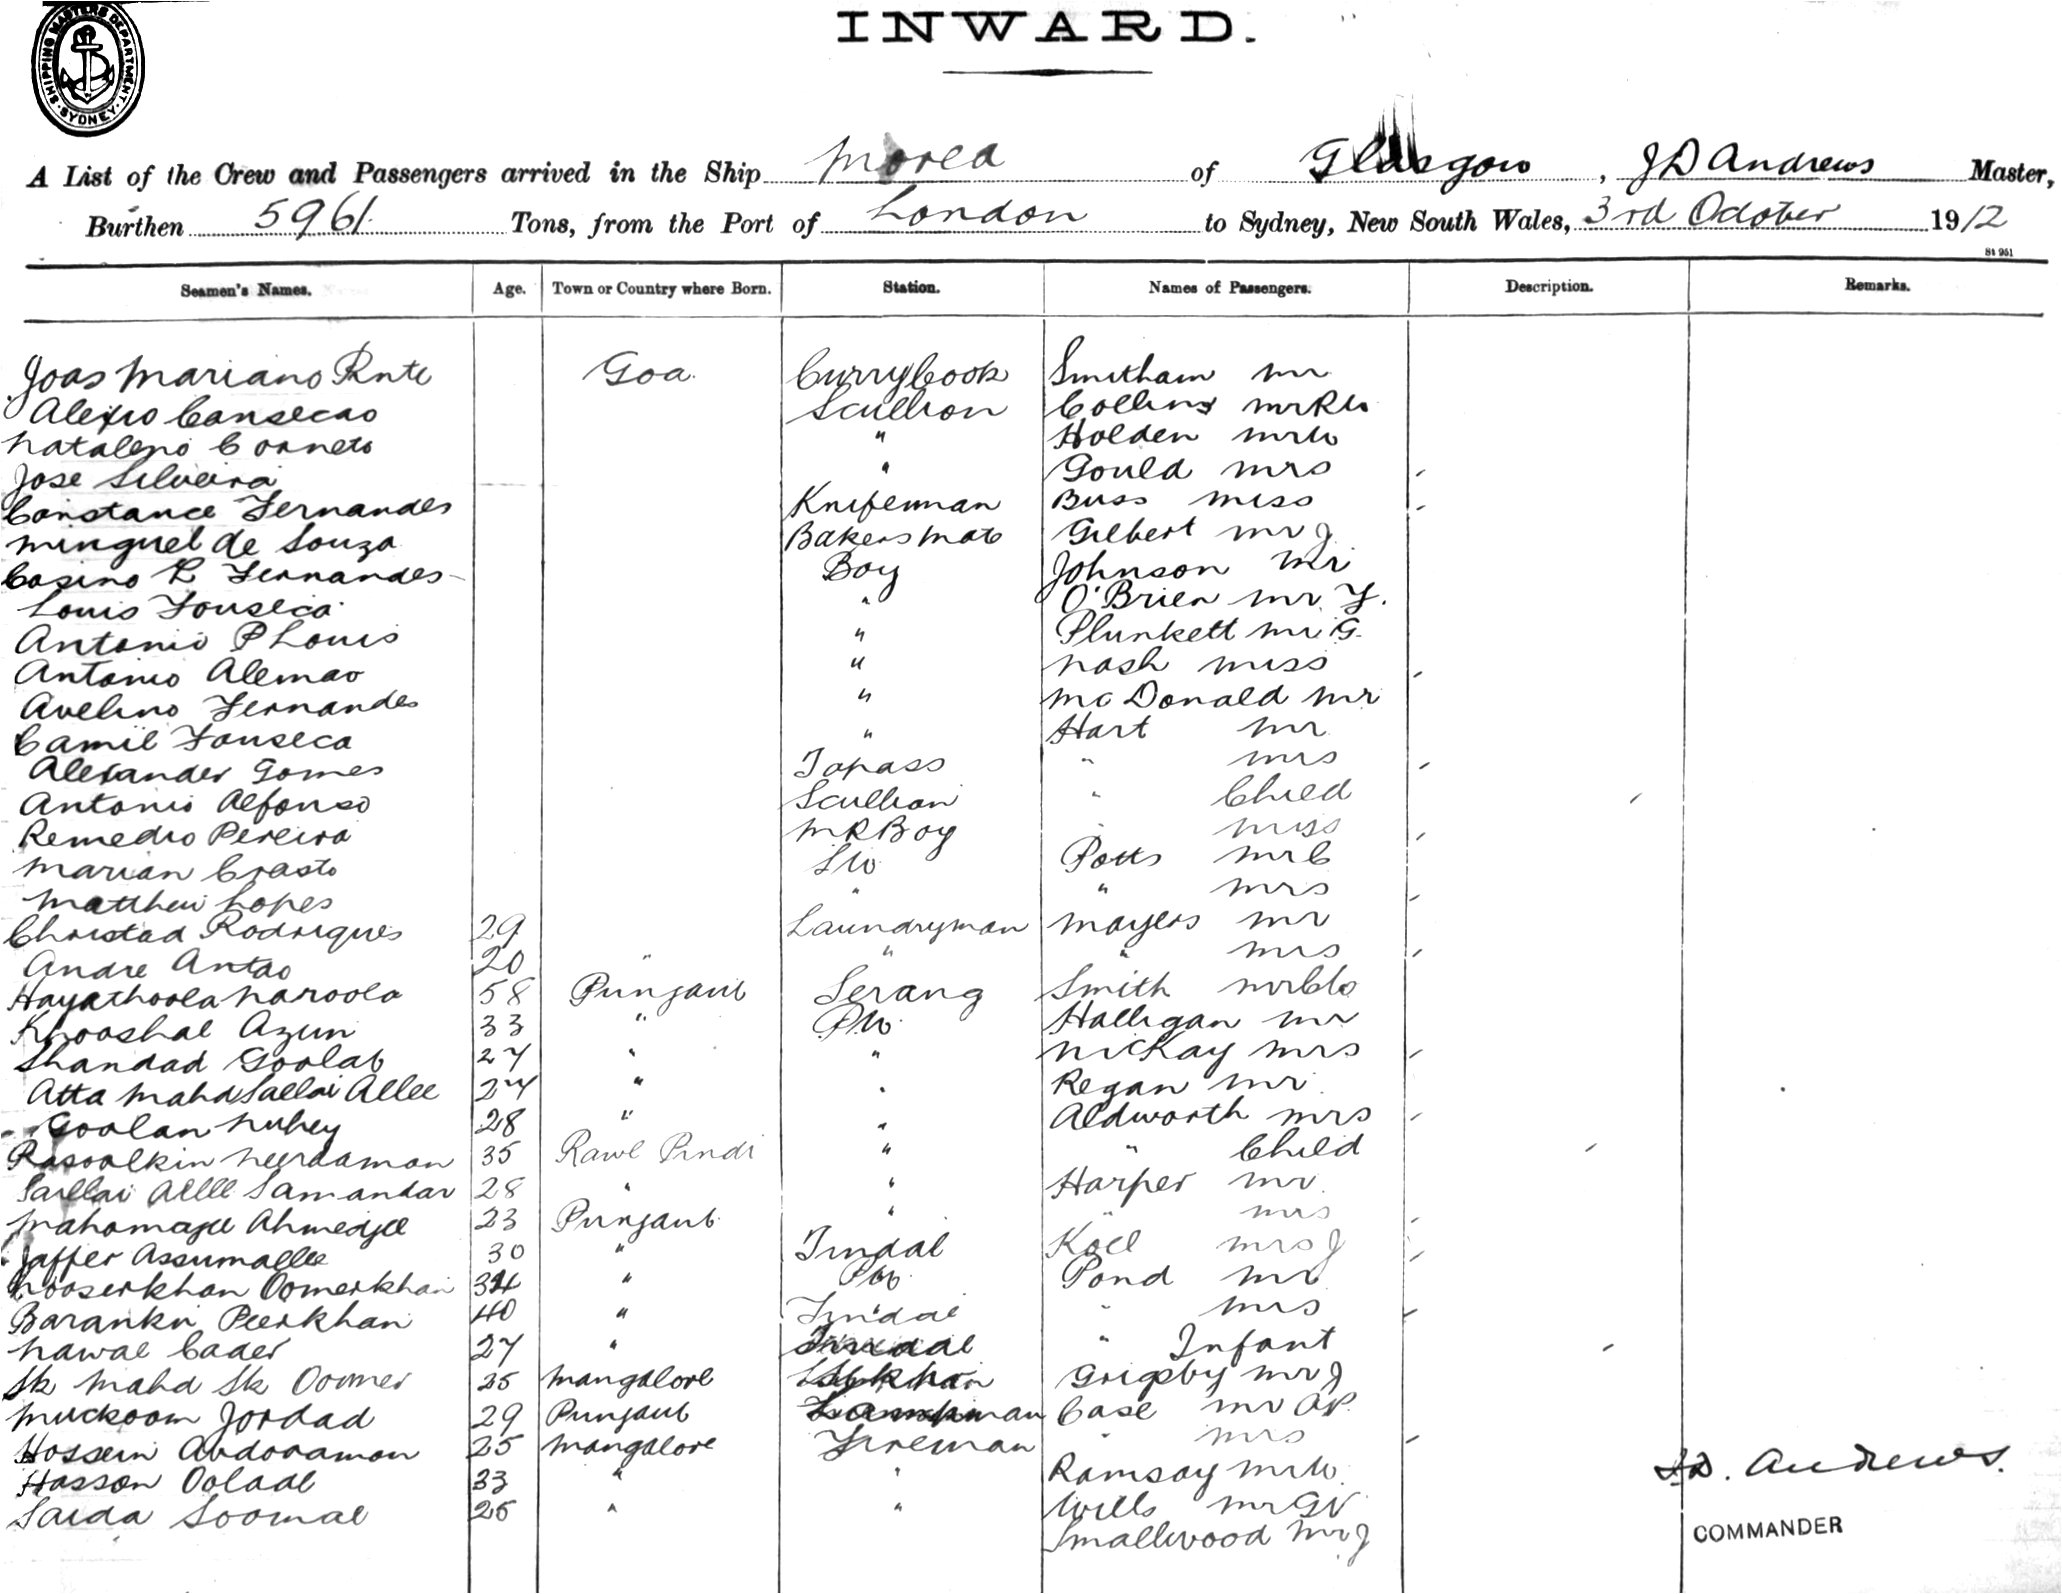 SHIPPING MASTERS DEPARTMENT · SYDNEY ·
INWARD.
A List of the Crew and Passengers arrived in the Ship Morea of Glasgow, J D Andrews Master,
Burthen 5961 Tons, from the Port of London to Sydney, New South Wales, 3rd October 1912
St 951
Seamen's Names. Age. Town or Country where Born. Station. Names of Passengers. Description. Remarks.
Joas Mariano Goa. Curry Cook Smitham Mr
Alexio Scullion Collins Mr R W
Nataleno " Holden Mr W
Jose Silveira " Gould Mrs
Constance Fernandes Knifeman Buss Miss
Minguel de Souza Bakers Mate Gilbert Mr J
Casino R Fernandes Boy Johnson Mr
Louis Fonseca " O'Brien Mr F.
Antonio P Louis " Plunkett Mr G.
Antonio Alemao " Nash Miss
Avelino Fernandes " McDonald Mr
Camil Fonseca " Hart Mr
Alexander Gomes Topass " Mrs
Antonio Alfonso Scullion " Child
Remedio Pereira M R Boy " Miss
Marian Crasto SW Potts Mr C
Matthew Lopes " " Mrs
Christad Rodrigues 29 Laundryman Mayers Mr
Andre Antao 20 " " " Mrs
Hayathoola Naroola 58 Punjaub Serang Smith Mr
Khooshal Azun 33 " PW Halligan Mr
Shandad Goolab 27 " " McKay Mrs
Atta Mahd Sallai Allee 27 " " Regan Mr
Goolan Nubey 28 " " Aldworth Mrs
Rasoolkin 35 Rawl Pindi " " Child
Saillai Allee Samandar 28 " " Harper Mr
Ahmedjee 23 Punjaub " " Mrs
Jaffer Assumallee 30 " Tindal Koll Mrs J
Nooserkhan Oomerkhan 34 " Pond Mr
Barankin Peerkhan 40 " Tindal " Mrs
Nawal Cader 27 " Tindal " Infant
Sk Mahd Sk Oomer 25 Mangalore Grigsby Mr J
Muckoom Jordad 29 Punjaub Case Mr A P.
Hossein Abdoraman 25 Mangalore Fireman " Mrs
Hasson Oolaal 33 " " Ramsay Mr W.
Saida Soomal 25 " " Wills Mr G V
Smallwood Mr J
J D. Andrews.
COMMANDER